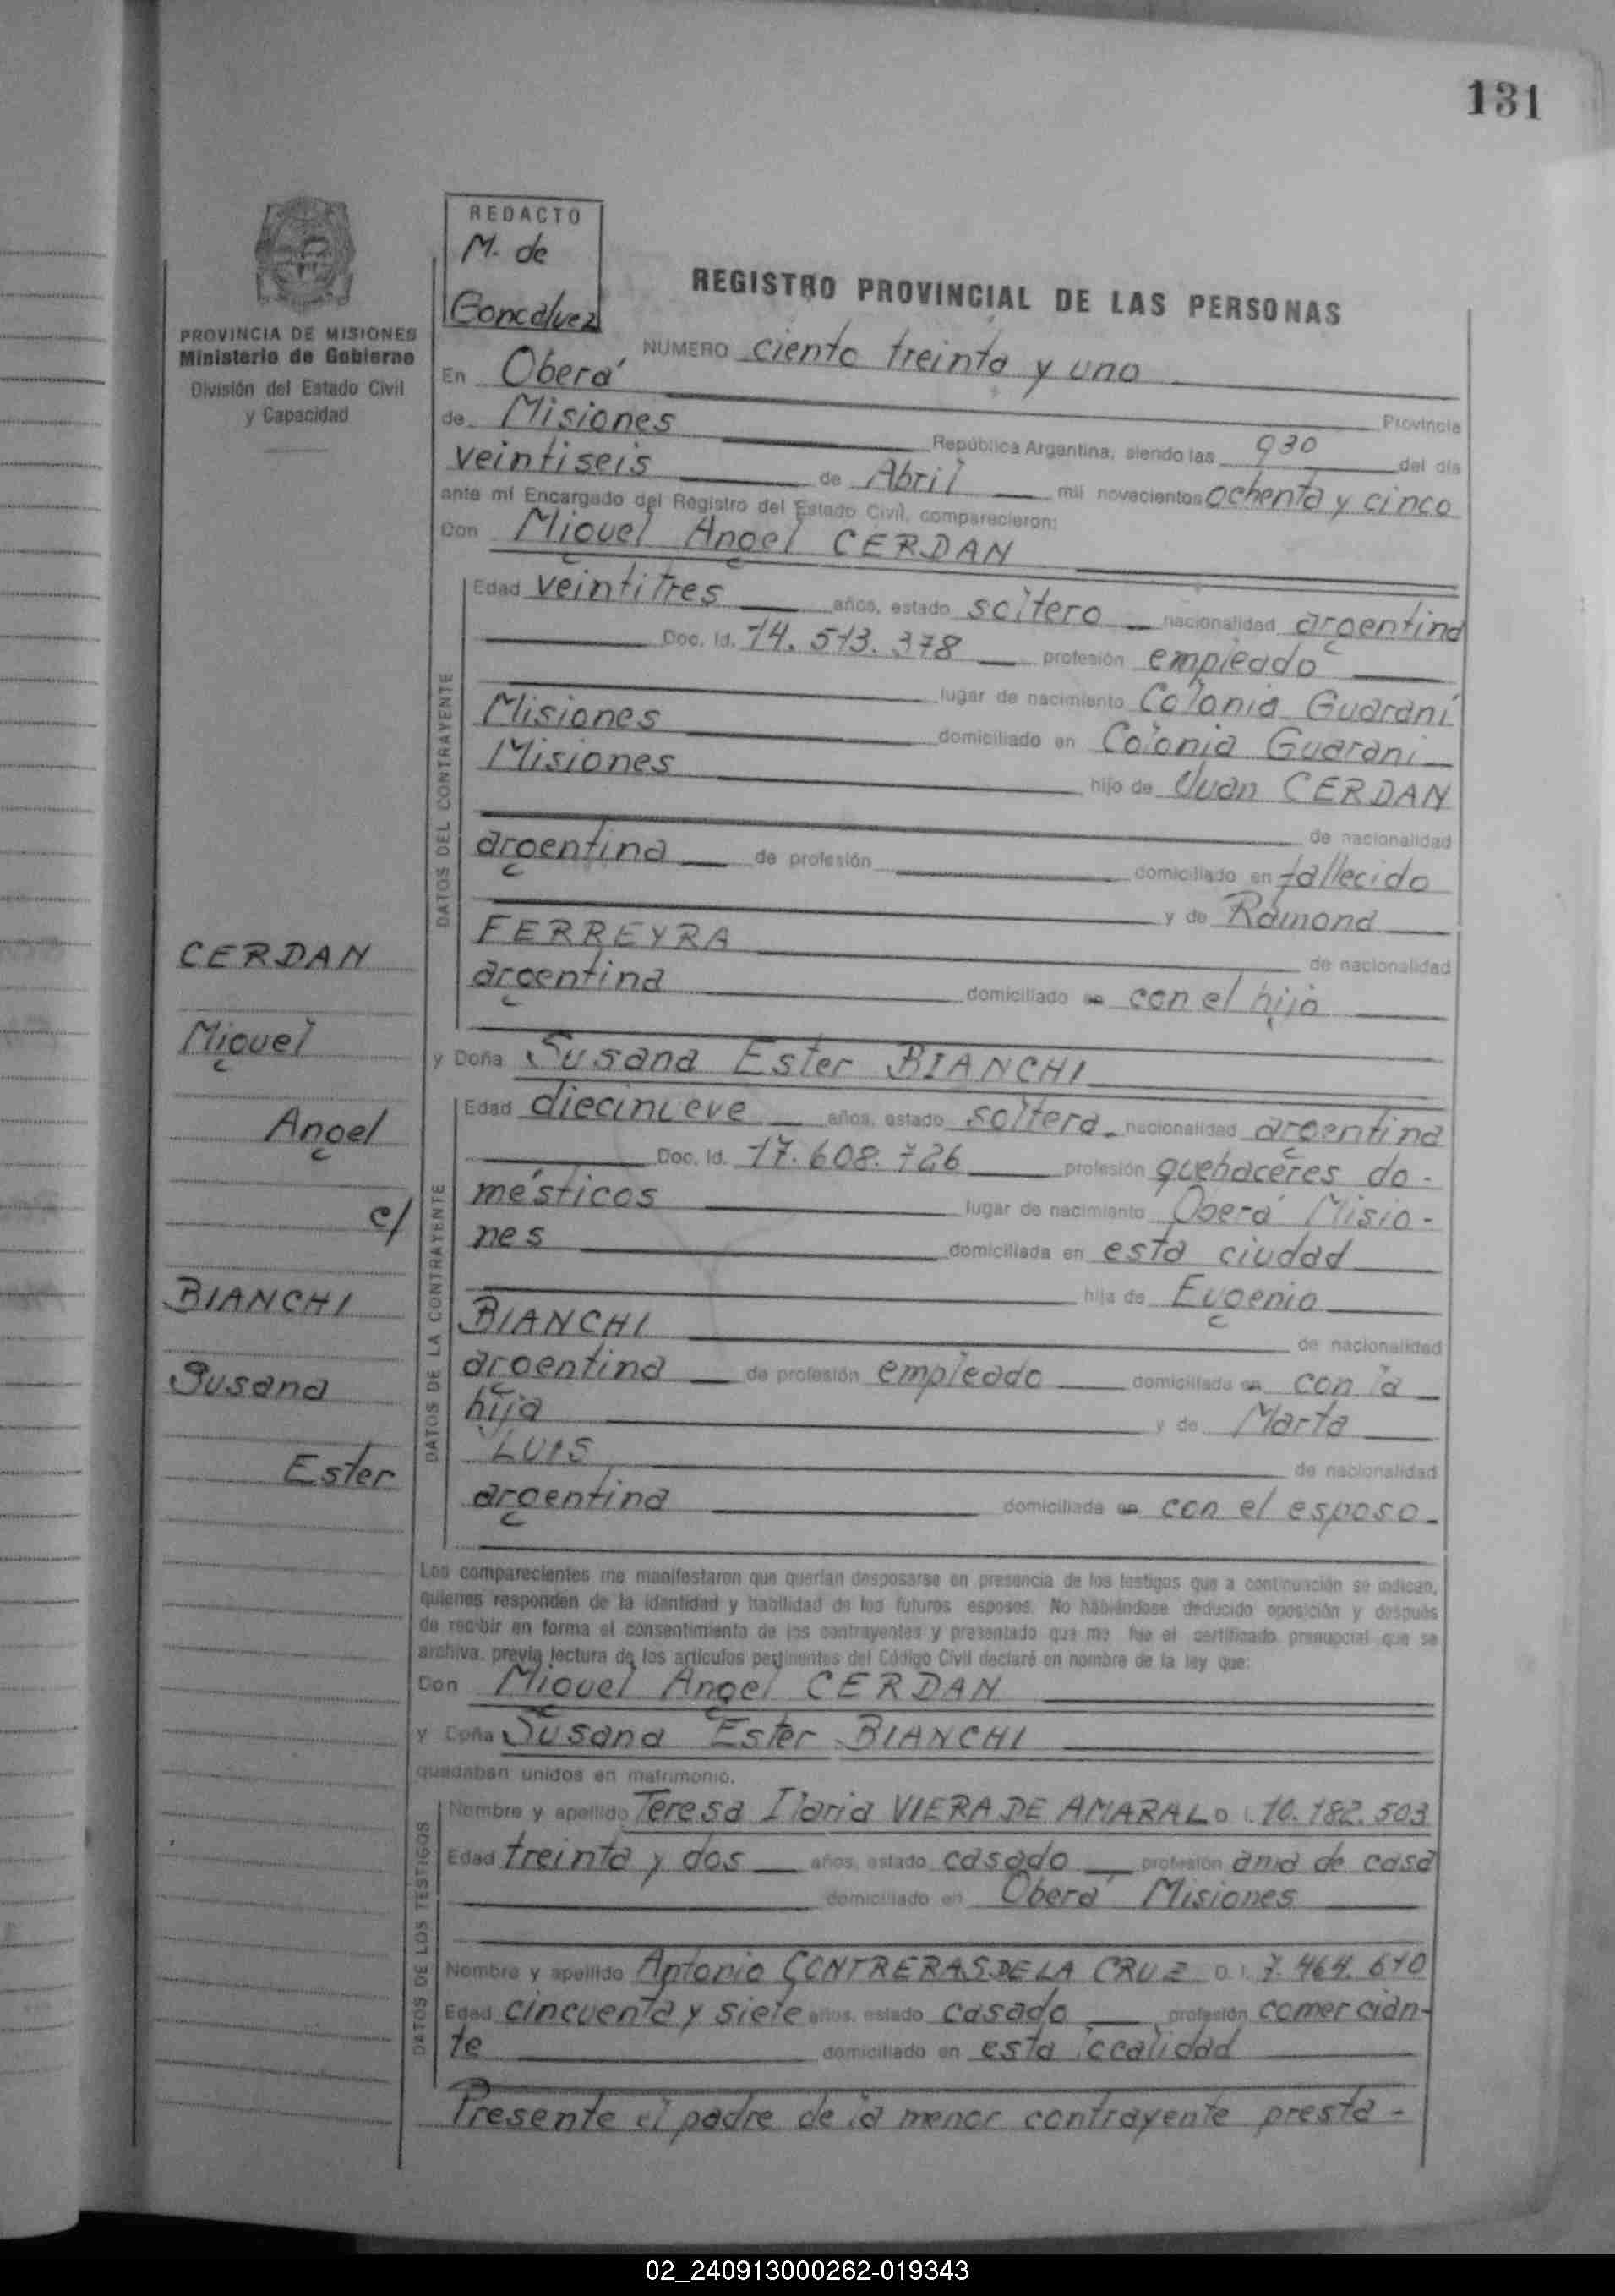 131
REDACTO
M. de
Goncalvez
PROVINCIA DE MISIONES
Ministerio de Gobierno
División del Estado Civil
y Capacidad
REGISTRO PROVINCIAL DE LAS PERSONAS
NUMERO ciento treinta y uno
En Oberá Provincia
de Misiones República Argentina, siendo las 930 del día
veintiseis de Abril mil novecientos ochenta y cinco
ante mí Encargado del Registro del Estado Civil, comparecieron:
Don Miguel Angel CERDAN
DATOS DEL CONTRAYENTE
Edad veintitres años, estado soltero nacionalidad argentina
Doc. Id. 14.513.378 profesión empleado
lugar de nacimiento Colonia Guaraní
Misiones domiciliado en Colonia Guarani
Misiones hijo de Juan CERDAN
de nacionalidad
argentina de profesión domiciliado en fallecido
y de Ramona
FERREYRA de nacionalidad
argentina domiciliado en con el hijo
y Doña Susana Ester BIANCHI
DATOS DE LA CONTRAYENTE
Edad diecinueve años, estado soltera nacionalidad argentina
Doc. Id. 17.608.726 profesión quehaceres do-
mésticos lugar de nacimiento Oberá Misio-
nes domiciliada en esta ciudad
hija de Eugenio
BIANCHI de nacionalidad
argentina de profesión empleado domiciliada en con la
hija y de Marta
LUIS de nacionalidad
argentina domiciliada en con el esposo
CERDAN
Miguel
Angel
c/
BIANCHI
Susana
Ester
Los comparecientes me manifestaron que querían desposarse en presencia de los testigos que a continuación se indican,
quienes responden de la identidad y habilidad de los futuros esposos. No habiéndose deducido oposición y después
de recibir en forma el consentimiento de los contrayentes y presentado que me fue el certificado prenupcial que se
archiva, previa lectura de los artículos pertinentes del Código Civil declaré en nombre de la ley que:
Don Miguel Angel CERDAN
y Doña Susana Ester BIANCHI
quedaban unidos en matrimonio.
DATOS DE LOS TESTIGOS
Nombre y apellido Teresa Ilaria VIERA DE AMARAL D. I. 10.182.503
Edad treinta y dos años, estado casado profesión ama de casa
domiciliado en Oberá Misiones
Nombre y apellido Antonio CONTRERAS DE LA CRUZ D. I. 7.464.610
Edad cincuenta y siete años, estado casado profesión comercian-
te domiciliado en esta localidad
Presente el padre de la menor contrayente presta-
02_240913000262-019343